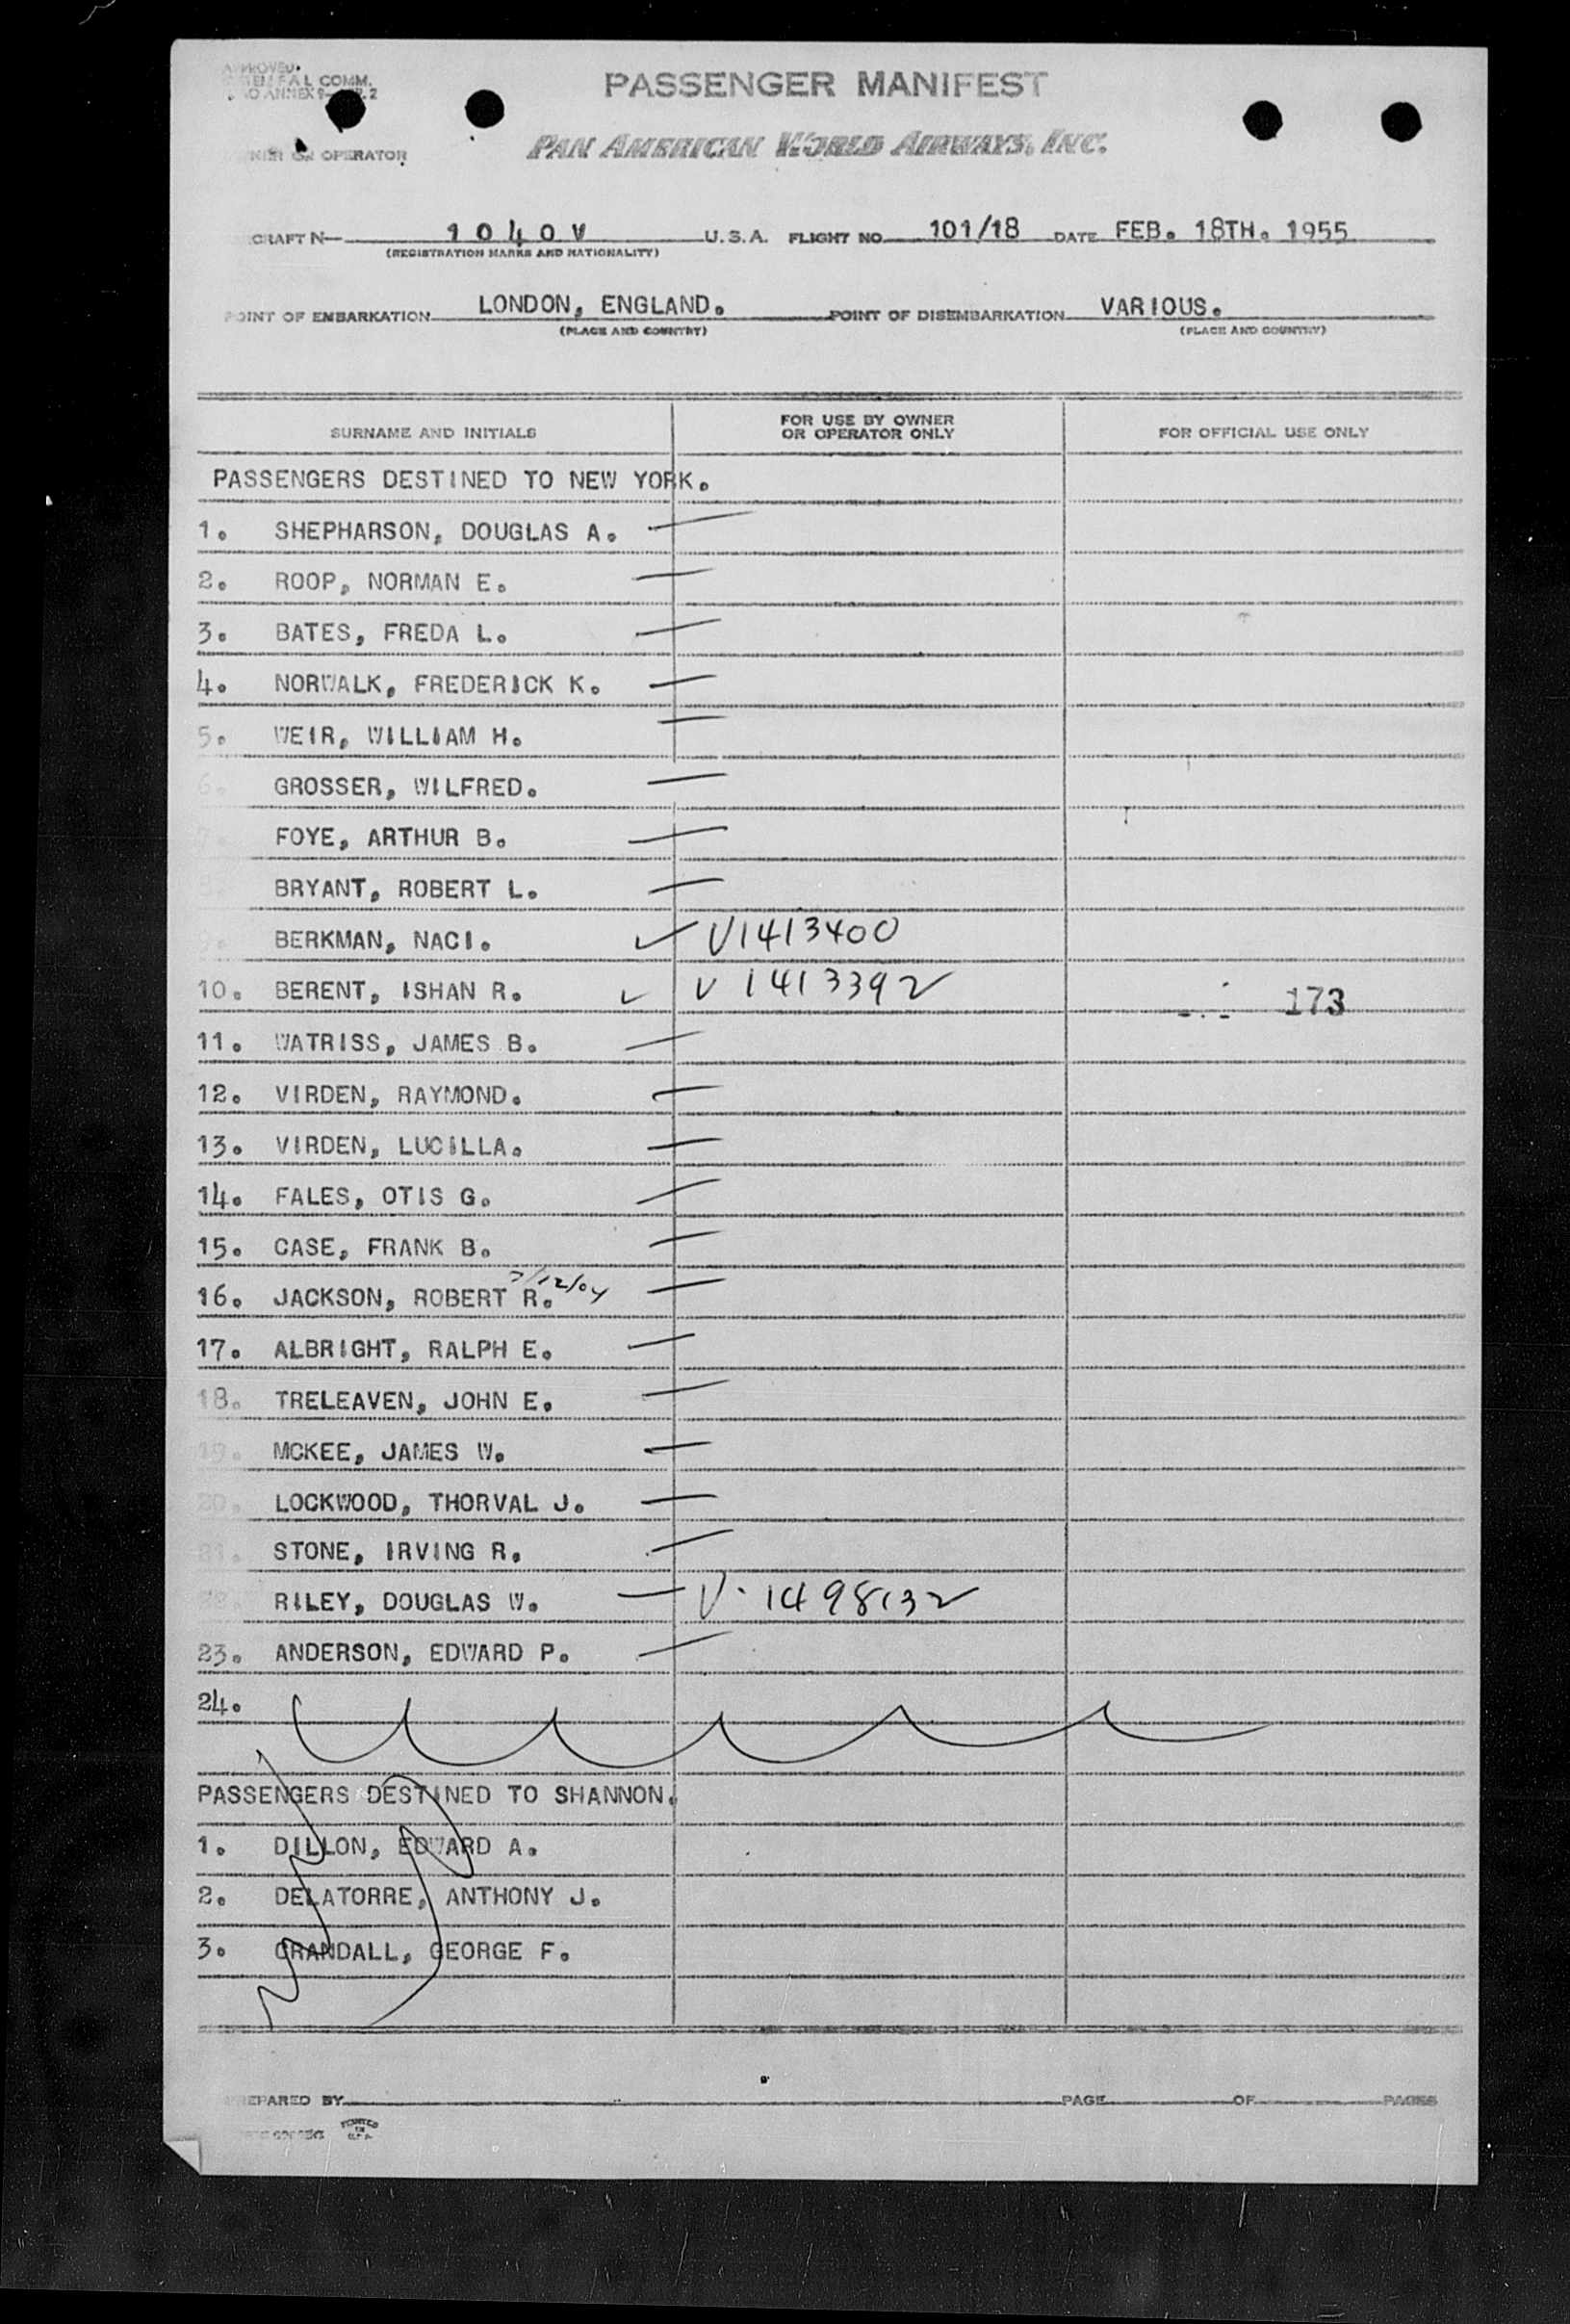 APPROVED.
COMM.
ANNEX 9 2
PASSENGER MANIFEST
PAN AMERICAN WORLD AIRWAYS, INC.
OR OPERATOR
CRAFT N— 1040V U.S.A. FLIGHT NO. 101/18 DATE FEB. 18TH. 1955
(REGISTRATION MARKS AND NATIONALITY)
POINT OF EMBARKATION LONDON, ENGLAND. POINT OF DISEMBARKATION VARIOUS.
(PLACE AND COUNTRY) (PLACE AND COUNTRY)
SURNAME AND INITIALS FOR USE BY OWNER OR OPERATOR ONLY FOR OFFICIAL USE ONLY
PASSENGERS DESTINED TO NEW YORK.
1. SHEPHARSON, DOUGLAS A.
2. ROOP, NORMAN E.
3. BATES, FREDA L.
4. NORWALK, FREDERICK K.
5. WEIR, WILLIAM H.
6. GROSSER, WILFRED.
7. FOYE, ARTHUR B.
BRYANT, ROBERT L.
9. BERKMAN, NACI. V1413400
10. BERENT, ISHAN R. V 1413392 173
11. WATRISS, JAMES B.
12. VIRDEN, RAYMOND.
13. VIRDEN, LUCILLA.
14. FALES, OTIS G.
15. CASE, FRANK B.
16. JACKSON, ROBERT R. 7/12/04
17. ALBRIGHT, RALPH E.
18. TRELEAVEN, JOHN E.
19. MCKEE, JAMES W.
20. LOCKWOOD, THORVAL J.
21. STONE, IRVING R.
22. RILEY, DOUGLAS W. V-1498132
23. ANDERSON, EDWARD P.
24.
PASSENGERS DESTINED TO SHANNON.
1. DILLON, EDWARD A.
2. DELATORRE, ANTHONY J.
3. CRANDALL, GEORGE F.
PREPARED BY PAGE OF PAGES
PRINTED IN U.S.A.